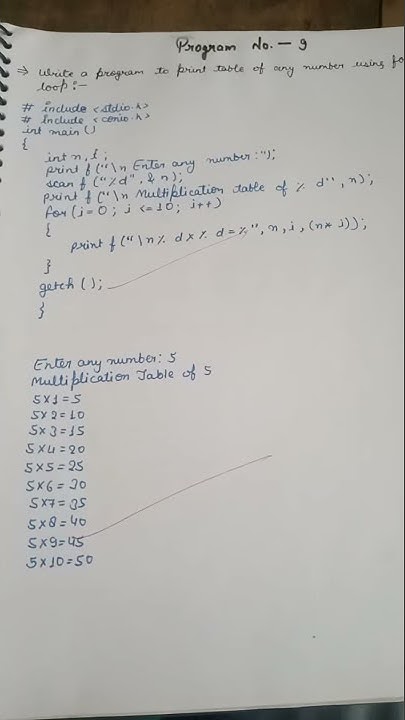 Program No. - 9
⇒ Write a program to print table of any number using fo
loop :-
# include <stdio.h>
# Include <conio.h>
int main ()
{
int n, i ;
print f ("\n Enter any number :");
scan f ("% d", & n);
print f ("\n Multiplication table of % d", n);
for (i=0 ; i <=10 ; i++)
{
print f ("\n % d x % d = %", n, i, (n* i));
}
getch ();
}
Enter any number: 5
Multiplication Table of 5
5x1=5
5x2=10
5x3=15
5x4=20
5x5=25
5x6=30
5x7=35
5x8=40
5x9=45
5x10=50